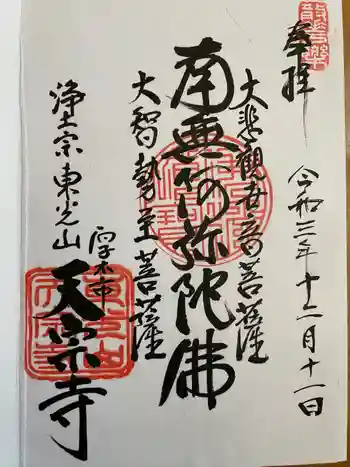 奉拝
令和三年十二月十一日
大悲觀世音菩薩
南無阿弥陀佛
大智勢至菩薩
厚木市
浄土宗東光山
天宗寺